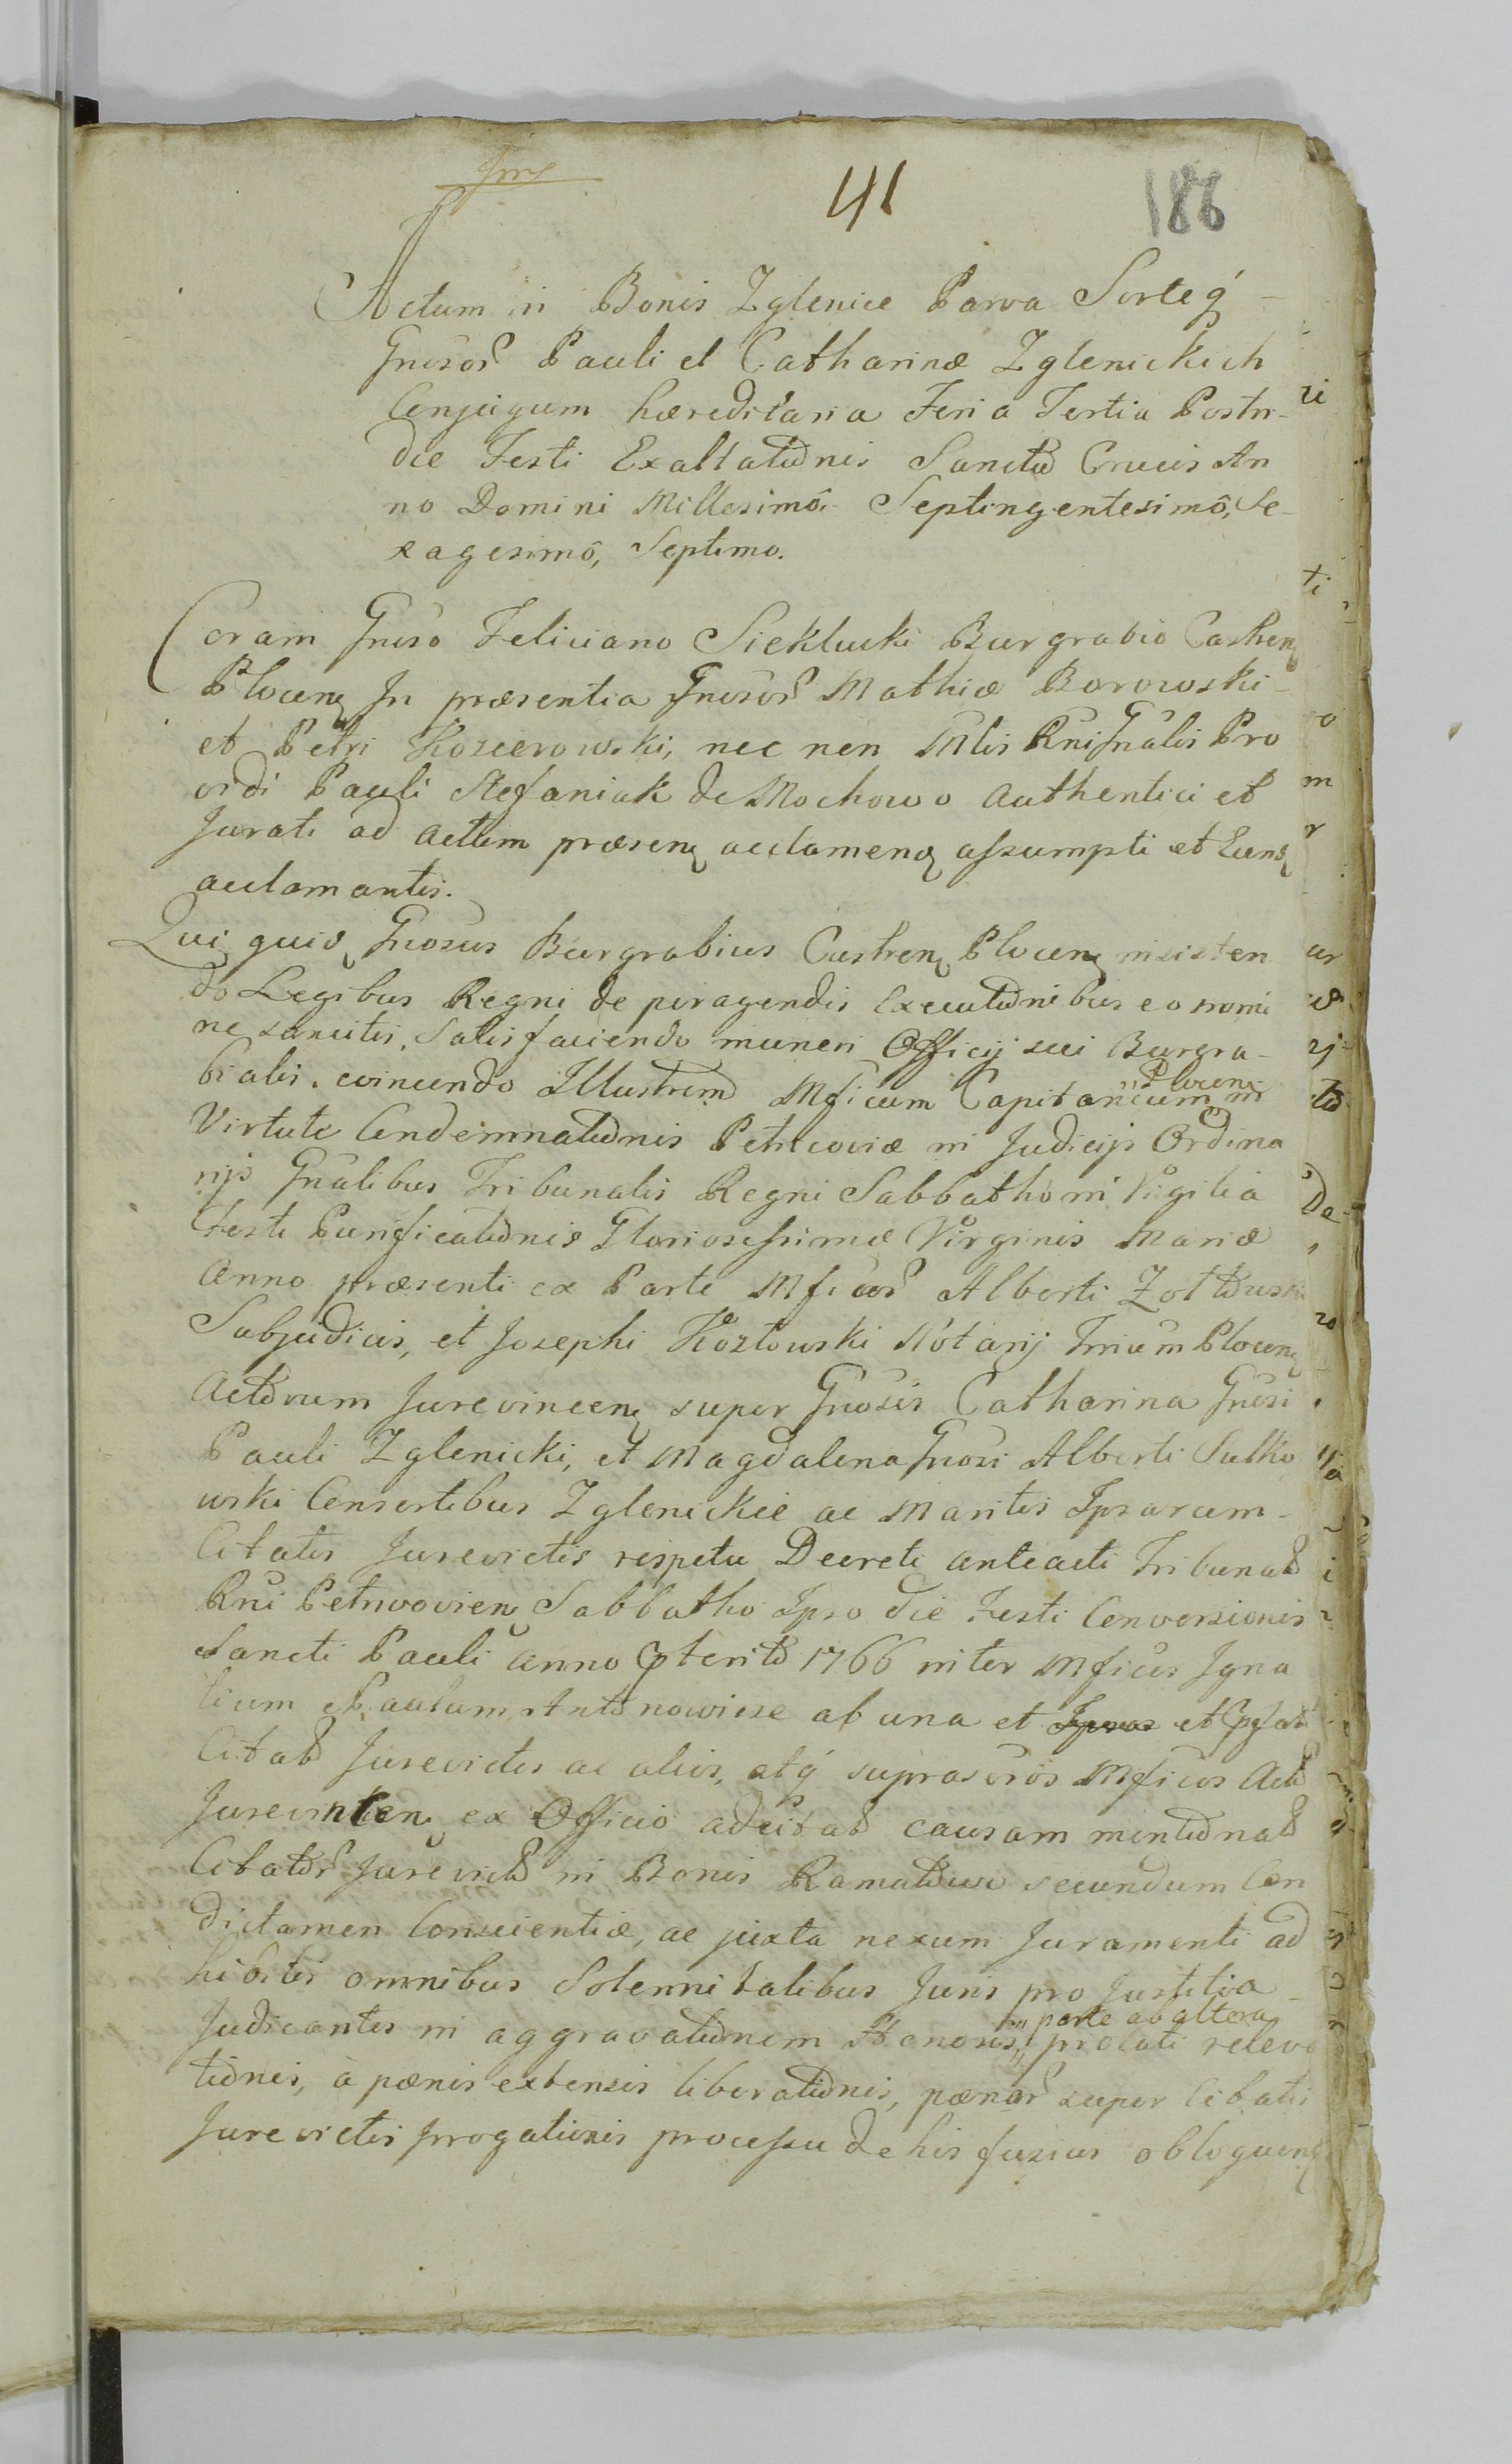 41 186
Actum in Bonis Zglenice Parva Sorteq́
Gnosor̃ Pauli et Catharinæ Zglenickich
Conjugum hæreditaria Feria Tertia Postri-
die Festi Exaltationis Sanctæ Crucis An
no Domini Millesimô Septingentesimô, Se-
xagesimô, Septimo.
Coram Gnoso Feliciano Sieklucki Burgrabio Castren
Plocen In præsentia Gnosor̃ Mathiæ Borowski
et Petri Kosierowski, nec non Mlis Rni Gnalis Pro
vidi Pauli Stefaniak de Mochowo Authentici et
Jurati ad Actum præsen actamenq assumpti et Eund
aclamantis.
Qui quid Gnosus Burgrabius Castren Plocen insisten
do Legibus Regni de peragendis Executionibus eo nomi
ne sancitis, Satisfaciendo muneri Officij sui Burgra-
bialis. Illustrem Mficum Capitaneum Plocen in
Virtute Condemnationis Petricoviæ in Judicijs Ordina
rijs Gnalibus Tribunalis Regni Sabbatho in Vigilia
Festi Purificationis Gloriosissimæ Virginis Mariæ
Anno præsenti ex Parte Mficor̃ Alberti Zołtowski
Subjudicis, et Josephi Kozłowski Notarij Trium Plocen
Actorum Jurevincen super Gnosis Catharina Gnosi
Pauli Zglenicki, et Magdalena Gnosi Alberti Sulko
wski Consortibus Zglenickie ac Maritis Ipsarum
Citatis Jurevictis respectu Decreti anteacti Tribunal
Rni Petricovien Sabbatho Ipso die Festi Conversionis
Sancti Pauli Anno pterito 1766 inter Mficos Igna
tium et Paulam Antonowicze ab una et et
Citat Jurevictos ac alios, atq́ suprascr̃os Mficos Act
Jurevincen ex Officio adcitat causam mentionat
Citator̃ Jurevict in Bonis Ramutowo secundum Con
dictamen Conscientiæ, ac juxta nexum Juramenti ad
hibitis omnibus Solennitatibus Juris pro Justitia
Judicantes in aggravationem Honoris, „parte ab altera„ prolati releva
tionis, à pænis extensis liberationis, pænar̃ super Citatis
Jurevictis irrogationis processu de his fusius obloquen